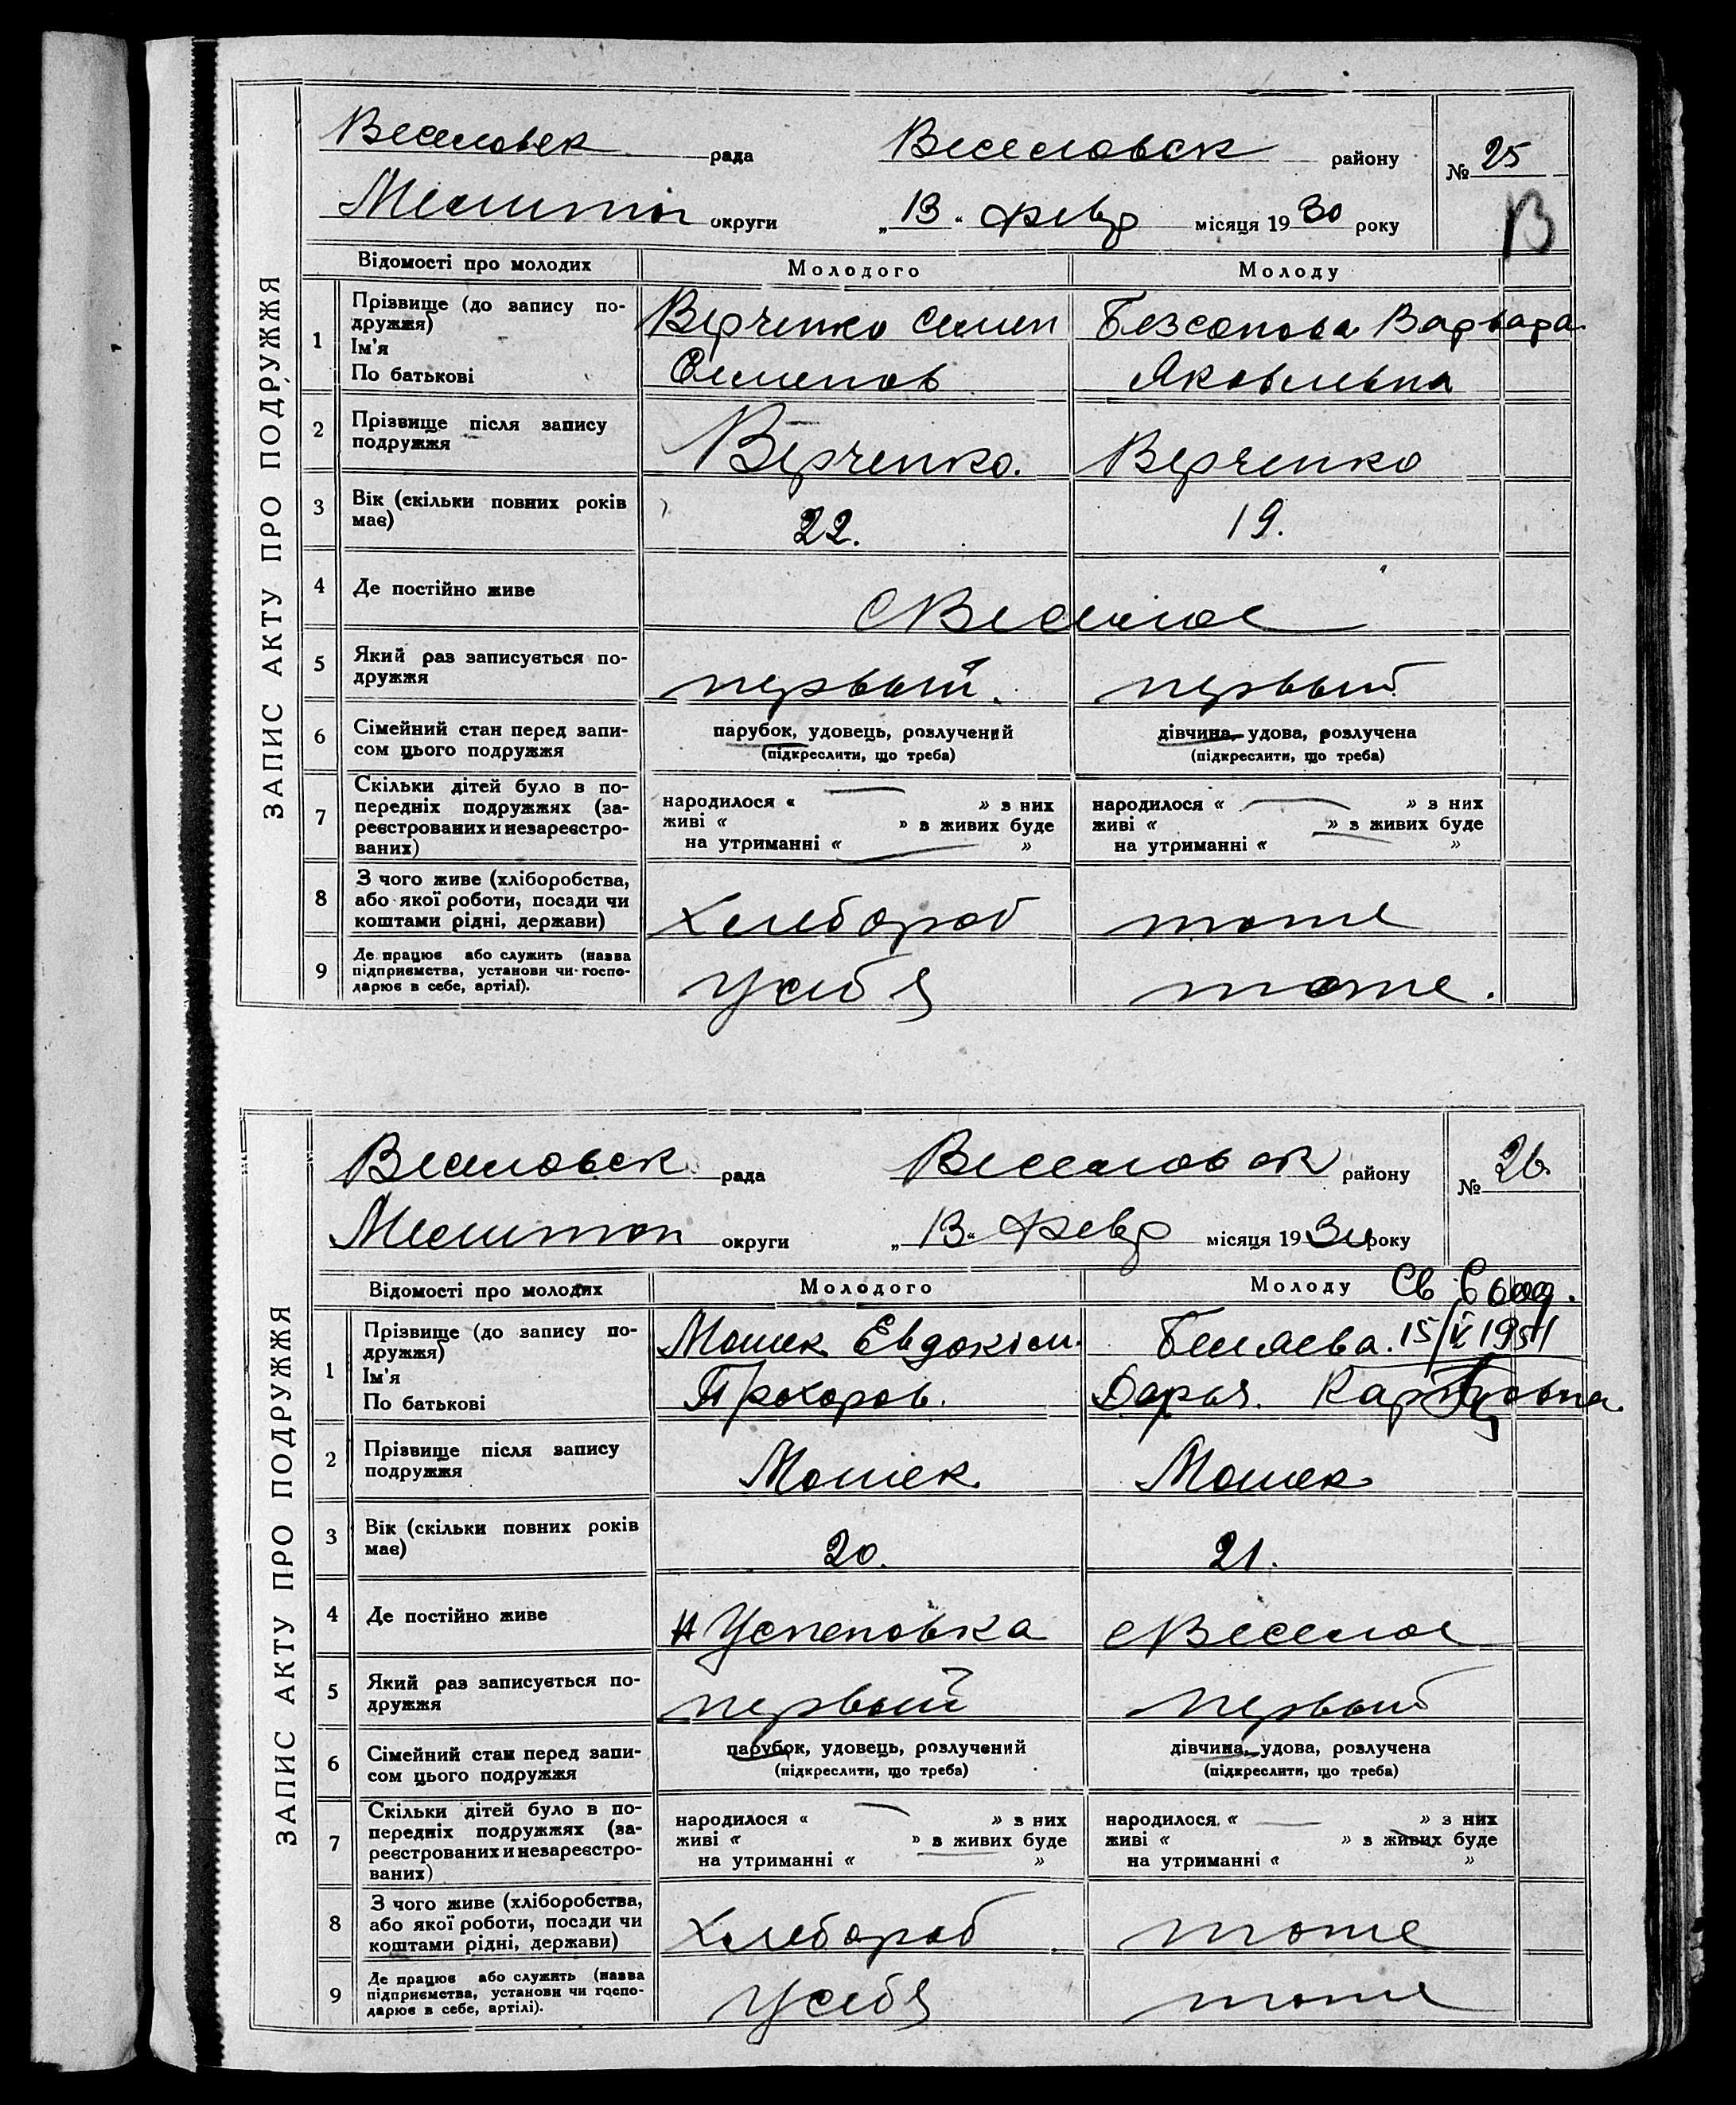 ЗАПИС АКТУ ПРО ПОДРУЖЖЯ
Веселовск рада Веселовск району № 25
Мелитоп округи „13“ февр місяця 1930 року
В
Відомості про молодих Молодого Молоду
1 Прізвище (до запису по-
дружжя)
Ім'я
По батькові
Верченко Семен
Семенов
Безсонова Варвара
Яковлевна
2 Прізвище після запису
подружжя
Верченко. Верченко
3 Вік (скільки повних років
має)
22. 19.
4 Де постійно живе
С Веселое
5 Який раз записується по-
дружжя
первый. первый
6 Сімейний стан перед запи-
сом цього подружжя
парубок, удовець, розлучений
(підкреслити, що треба)
дівчина, удова, розлучена
(підкреслити, що треба)
7 Скільки дітей було в по-
передніх подружжях (за-
реєстрованих и незареєстро-
ваних)
народилося « — » з них
живі « » в живих буде
на утриманні « — »
народилося « — » з них
живі « » з живих буде
на утриманні « »
8 З чого живе (хліборобства,
або якої роботи, посади чи
коштами рідні, держави)
Хлебороб тоже
9 Де працює або служить (назва
підприємства, установи чи госпо-
дарює в себе, артілі).
У себя тоже.
ЗАПИС АКТУ ПРО ПОДРУЖЖЯ
Веселовск рада Веселовск району № 26.
Мелитоп округи „13“ февр місяця 1930 року
Відомості про молодих Молодого Молоду
Св
15/V 1951
1 Прізвище (до запису по-
дружжя)
Ім'я
По батькові
Мошек Евдоким.
Прохоров.
Беляева.
Дарья. Карповна.
2 Прізвище після запису
подружжя
Мошек. Мошек
3 Вік (скільки повних років
має)
20. 21.
4 Де постійно живе
Н Успеновка С Веселое
5 Який раз записується по-
дружжя
первый первый
6 Сімейний стан перед запи-
сом цього подружжя
парубок, удовець, розлучений
(підкреслити, що треба)
дівчина, удова, розлучена
(підкреслити, що треба)
7 Скільки дітей було в по-
передніх подружжях (за-
реєстрованих и незареєстро-
ваних)
народилося « — » з них
живі « » в живих буде
на утриманні « — »
народилося « — » з них
живі « » з живих буде
на утриманні « »
8 З чого живе (хліборобства,
або якої роботи, посади чи
коштами рідні, держави)
Хлебороб тоже
9 Де працює або служить (назва
підприємства, установи чи госпо-
дарює в себе, артілі).
У себя тоже